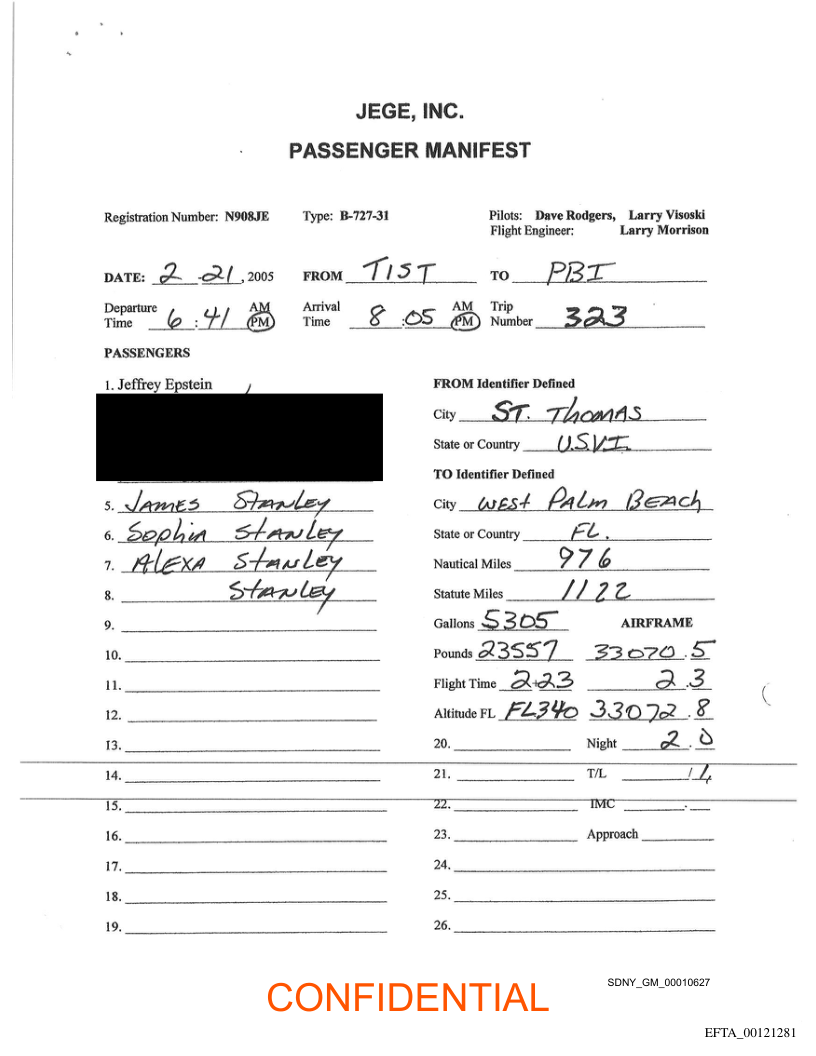 JEGE, INC.
PASSENGER MANIFEST
Registration Number: N908JE Type: B-727-31 Pilots: Dave Rodgers, Larry Visoski
Flight Engineer: Larry Morrison
DATE: 2-21, 2005 FROM TIST TO PBI
Departure Time 6:41 AM PM Arrival Time 8:05 AM PM Trip Number 323
PASSENGERS
1. Jeffrey Epstein FROM Identifier Defined
City ST. THOMAS
State or Country U.S.V.I.
TO Identifier Defined
5. JAMES STANLEY City WEST PALM BEACH
6. SOPHIA STANLEY State or Country FL.
7. ALEXA STANLEY Nautical Miles 976
8. STANLEY Statute Miles 1122
9. Gallons 5305 AIRFRAME
10. Pounds 23557 33070.5
11. Flight Time 2+23 2.3
12. Altitude FL FL340 33072.8
13. 20. Night 2.0
14. 21. T/L 1/1
15. 22. IMC .
16. 23. Approach
17. 24.
18. 25.
19. 26.
SDNY_GM_00010627
CONFIDENTIAL
EFTA_00121281